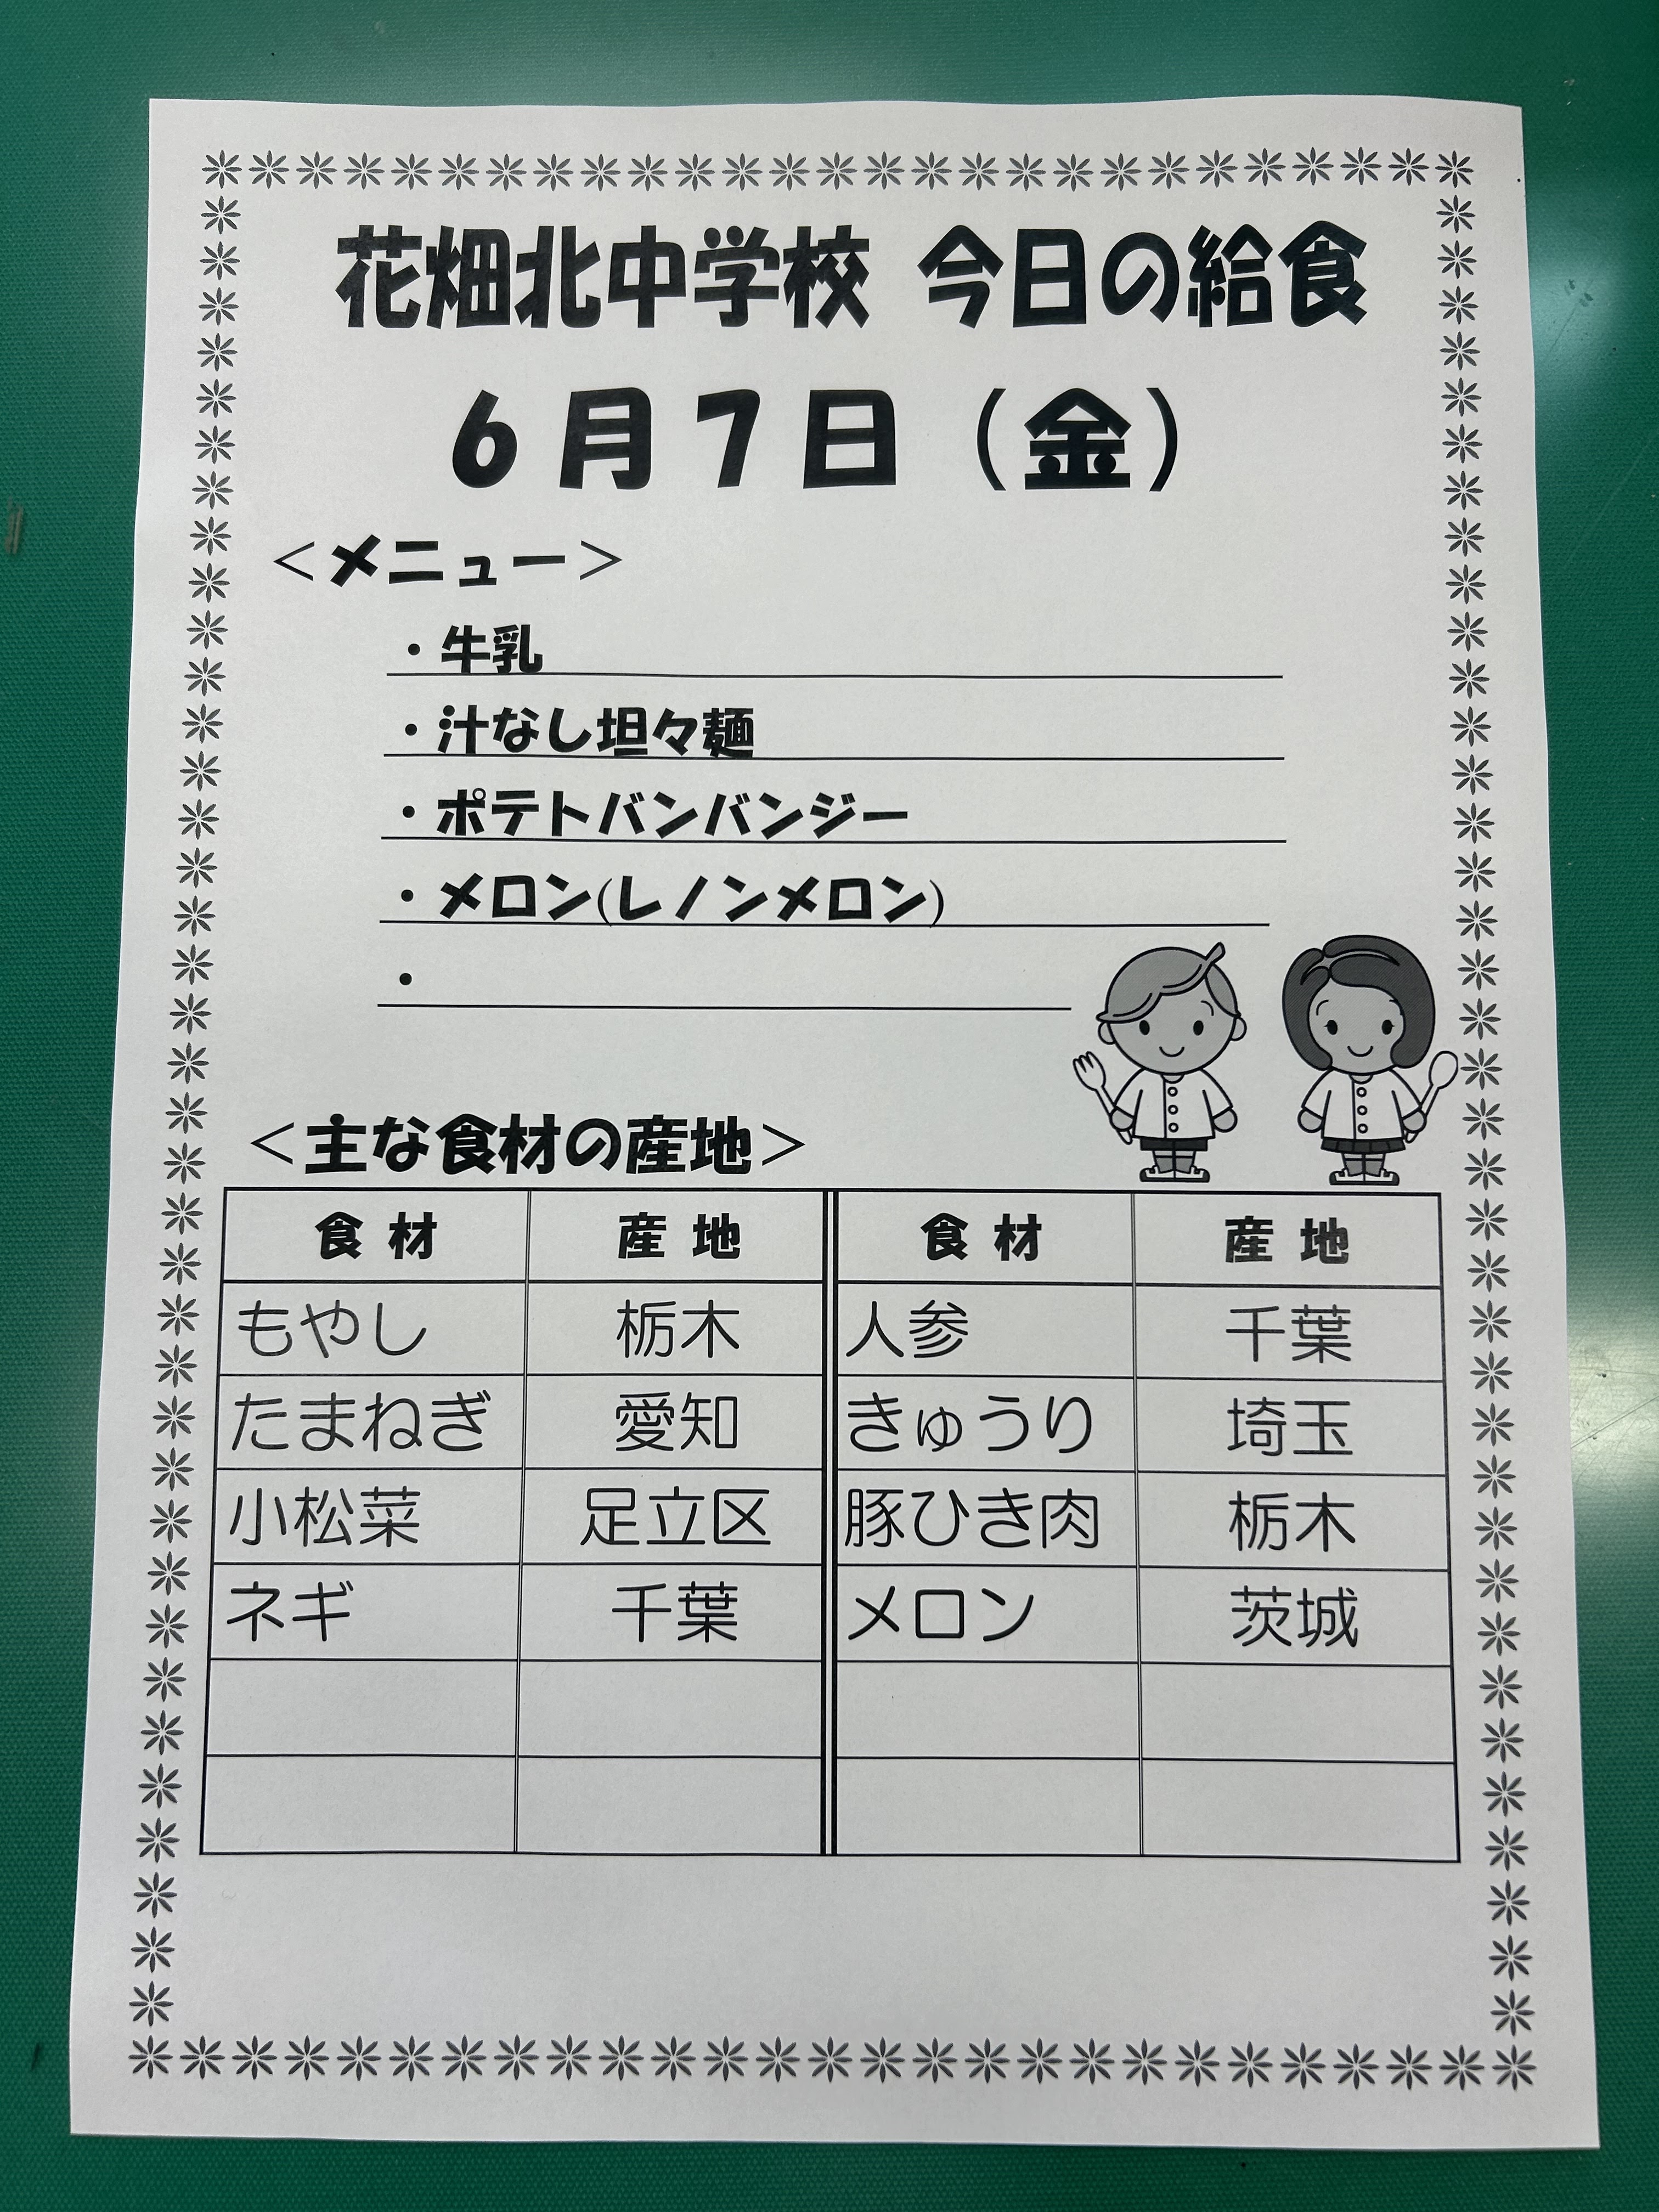 花畑北中学校 今日の給食
6月7日（金）
＜メニュー＞
・牛乳
・汁なし坦々麺
・ポテトバンバンジー
・メロン(レノンメロン)
・
＜主な食材の産地＞
食材 産地 食材 産地
もやし 栃木 人参 千葉
たまねぎ 愛知 きゅうり 埼玉
小松菜 足立区 豚ひき肉 栃木
ネギ 千葉 メロン 茨城